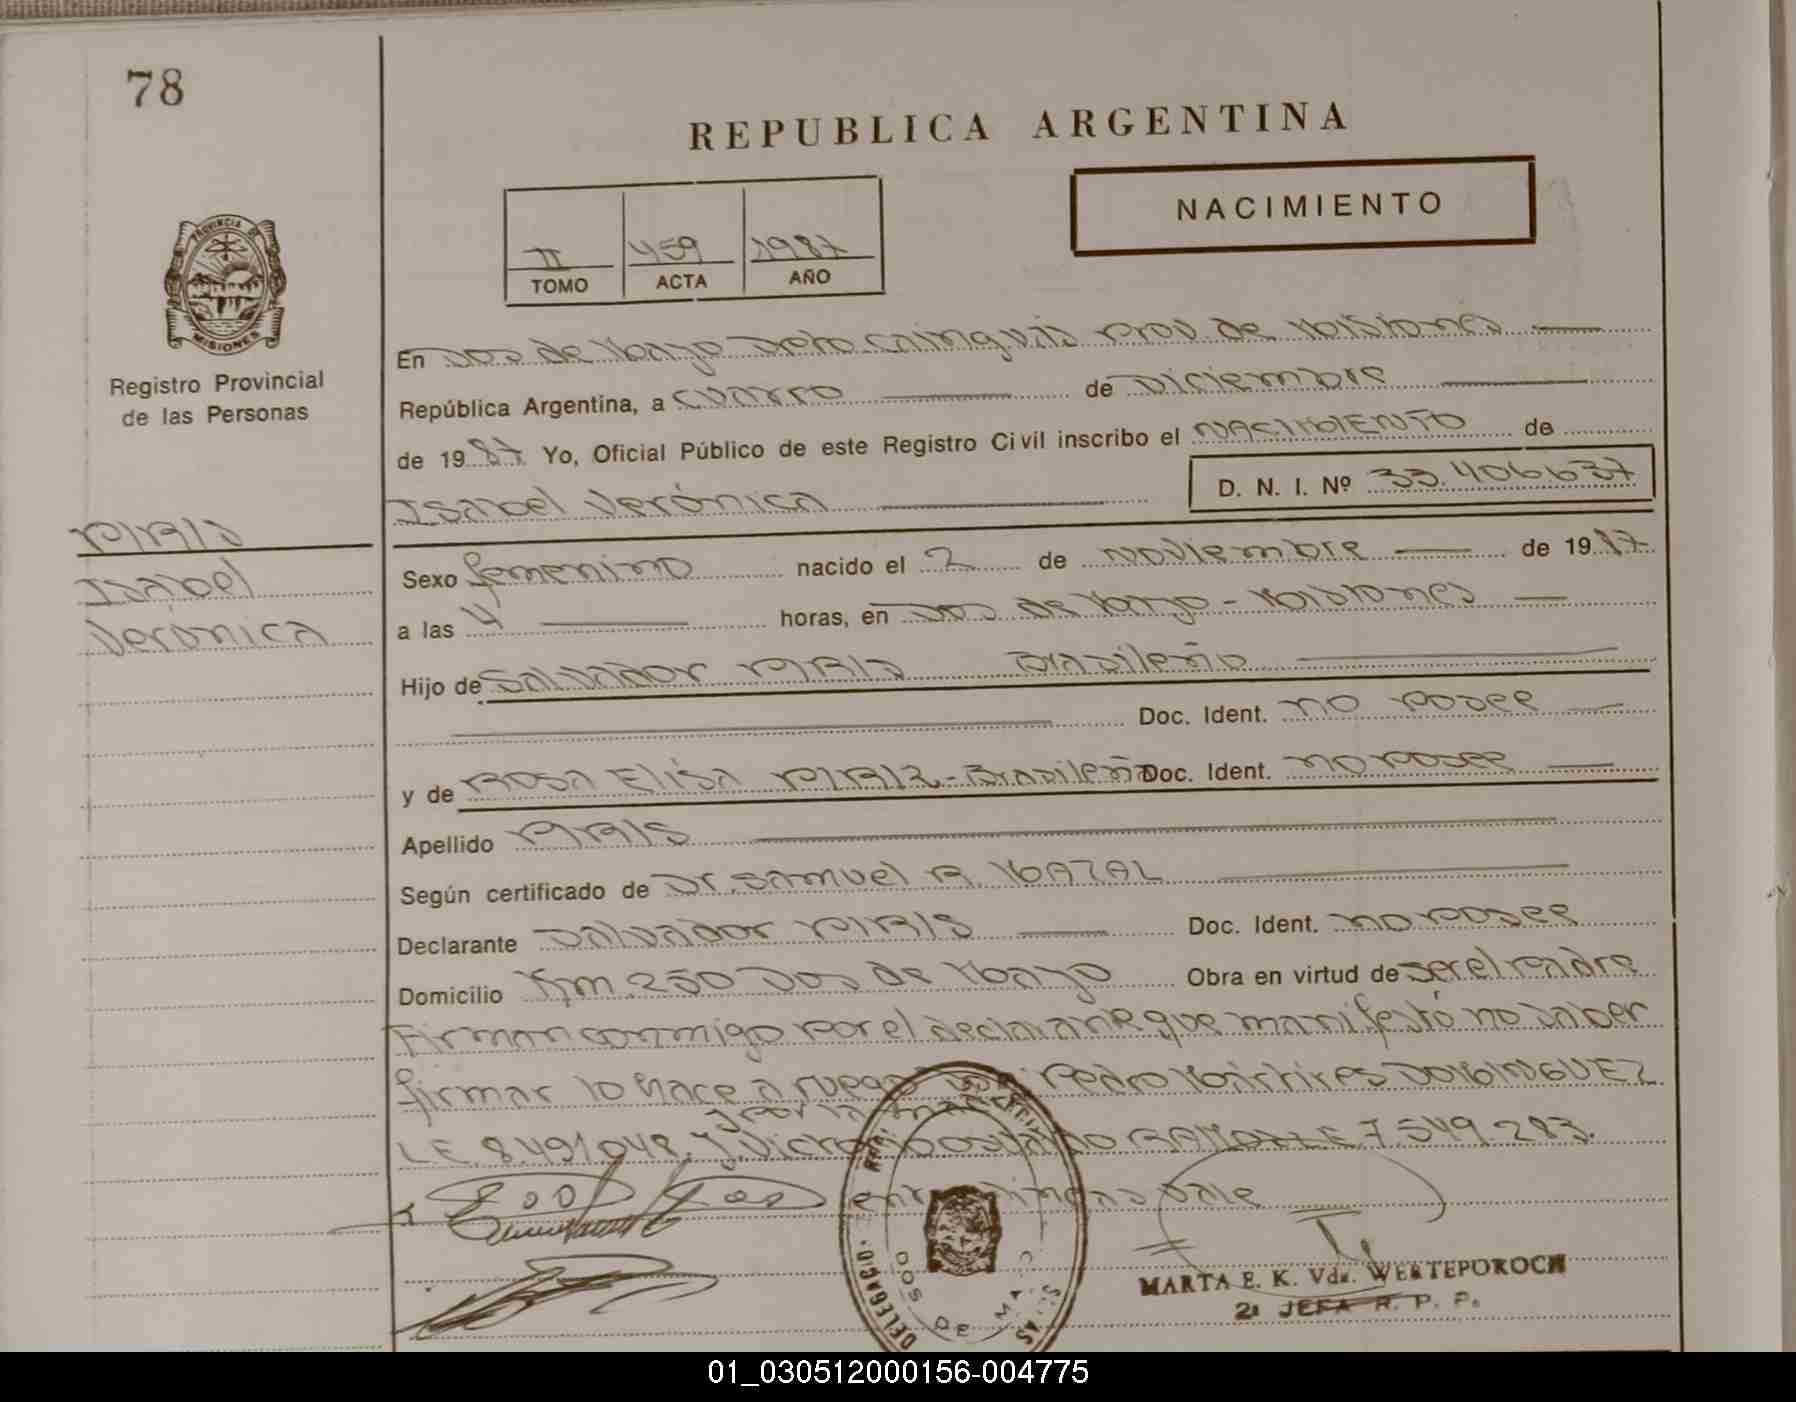 78
REPUBLICA ARGENTINA
NACIMIENTO
II 459 1987
TOMO ACTA AÑO
PROVINCIA DE
MISIONES
Registro Provincial
de las Personas
En Dos de Mayo Dpto. Cainguás Prov. de Misiones
República Argentina, a cuatro de Diciembre
de 1987 Yo, Oficial Público de este Registro Civil inscribo el NACIMIENTO de
Isabel Verónica D. N. I. Nº 33.406637
PIRIS
Isabel
Verónica
Sexo femenino nacido el 2 de noviembre de 1987
a las 4 horas, en Dos de Mayo - Misiones
Hijo de Salvador PIRIS Brasileño
Doc. Ident. no posee
y de Rosa Elisa PIRIZ - Brasileña Doc. Ident. no posee
Apellido PIRIS
Según certificado de Dr. Samuel R. MAZAL
Declarante Salvador PIRIS Doc. Ident. no posee
Domicilio Km. 250 Dos de Mayo Obra en virtud de ser el padre
Firman conmigo por el declarante que manifestó no saber
firmar lo hace a ruego Pedro DOMINGUEZ
y por la madre
LE 8.491.048. y 7.549.283.
entre líneas vale
DELEGACIO
DOS DE MAYO
MARTA E. K. Vda. WERTEPOROCH
2a JEFA R. P. P.
01_030512000156-004775